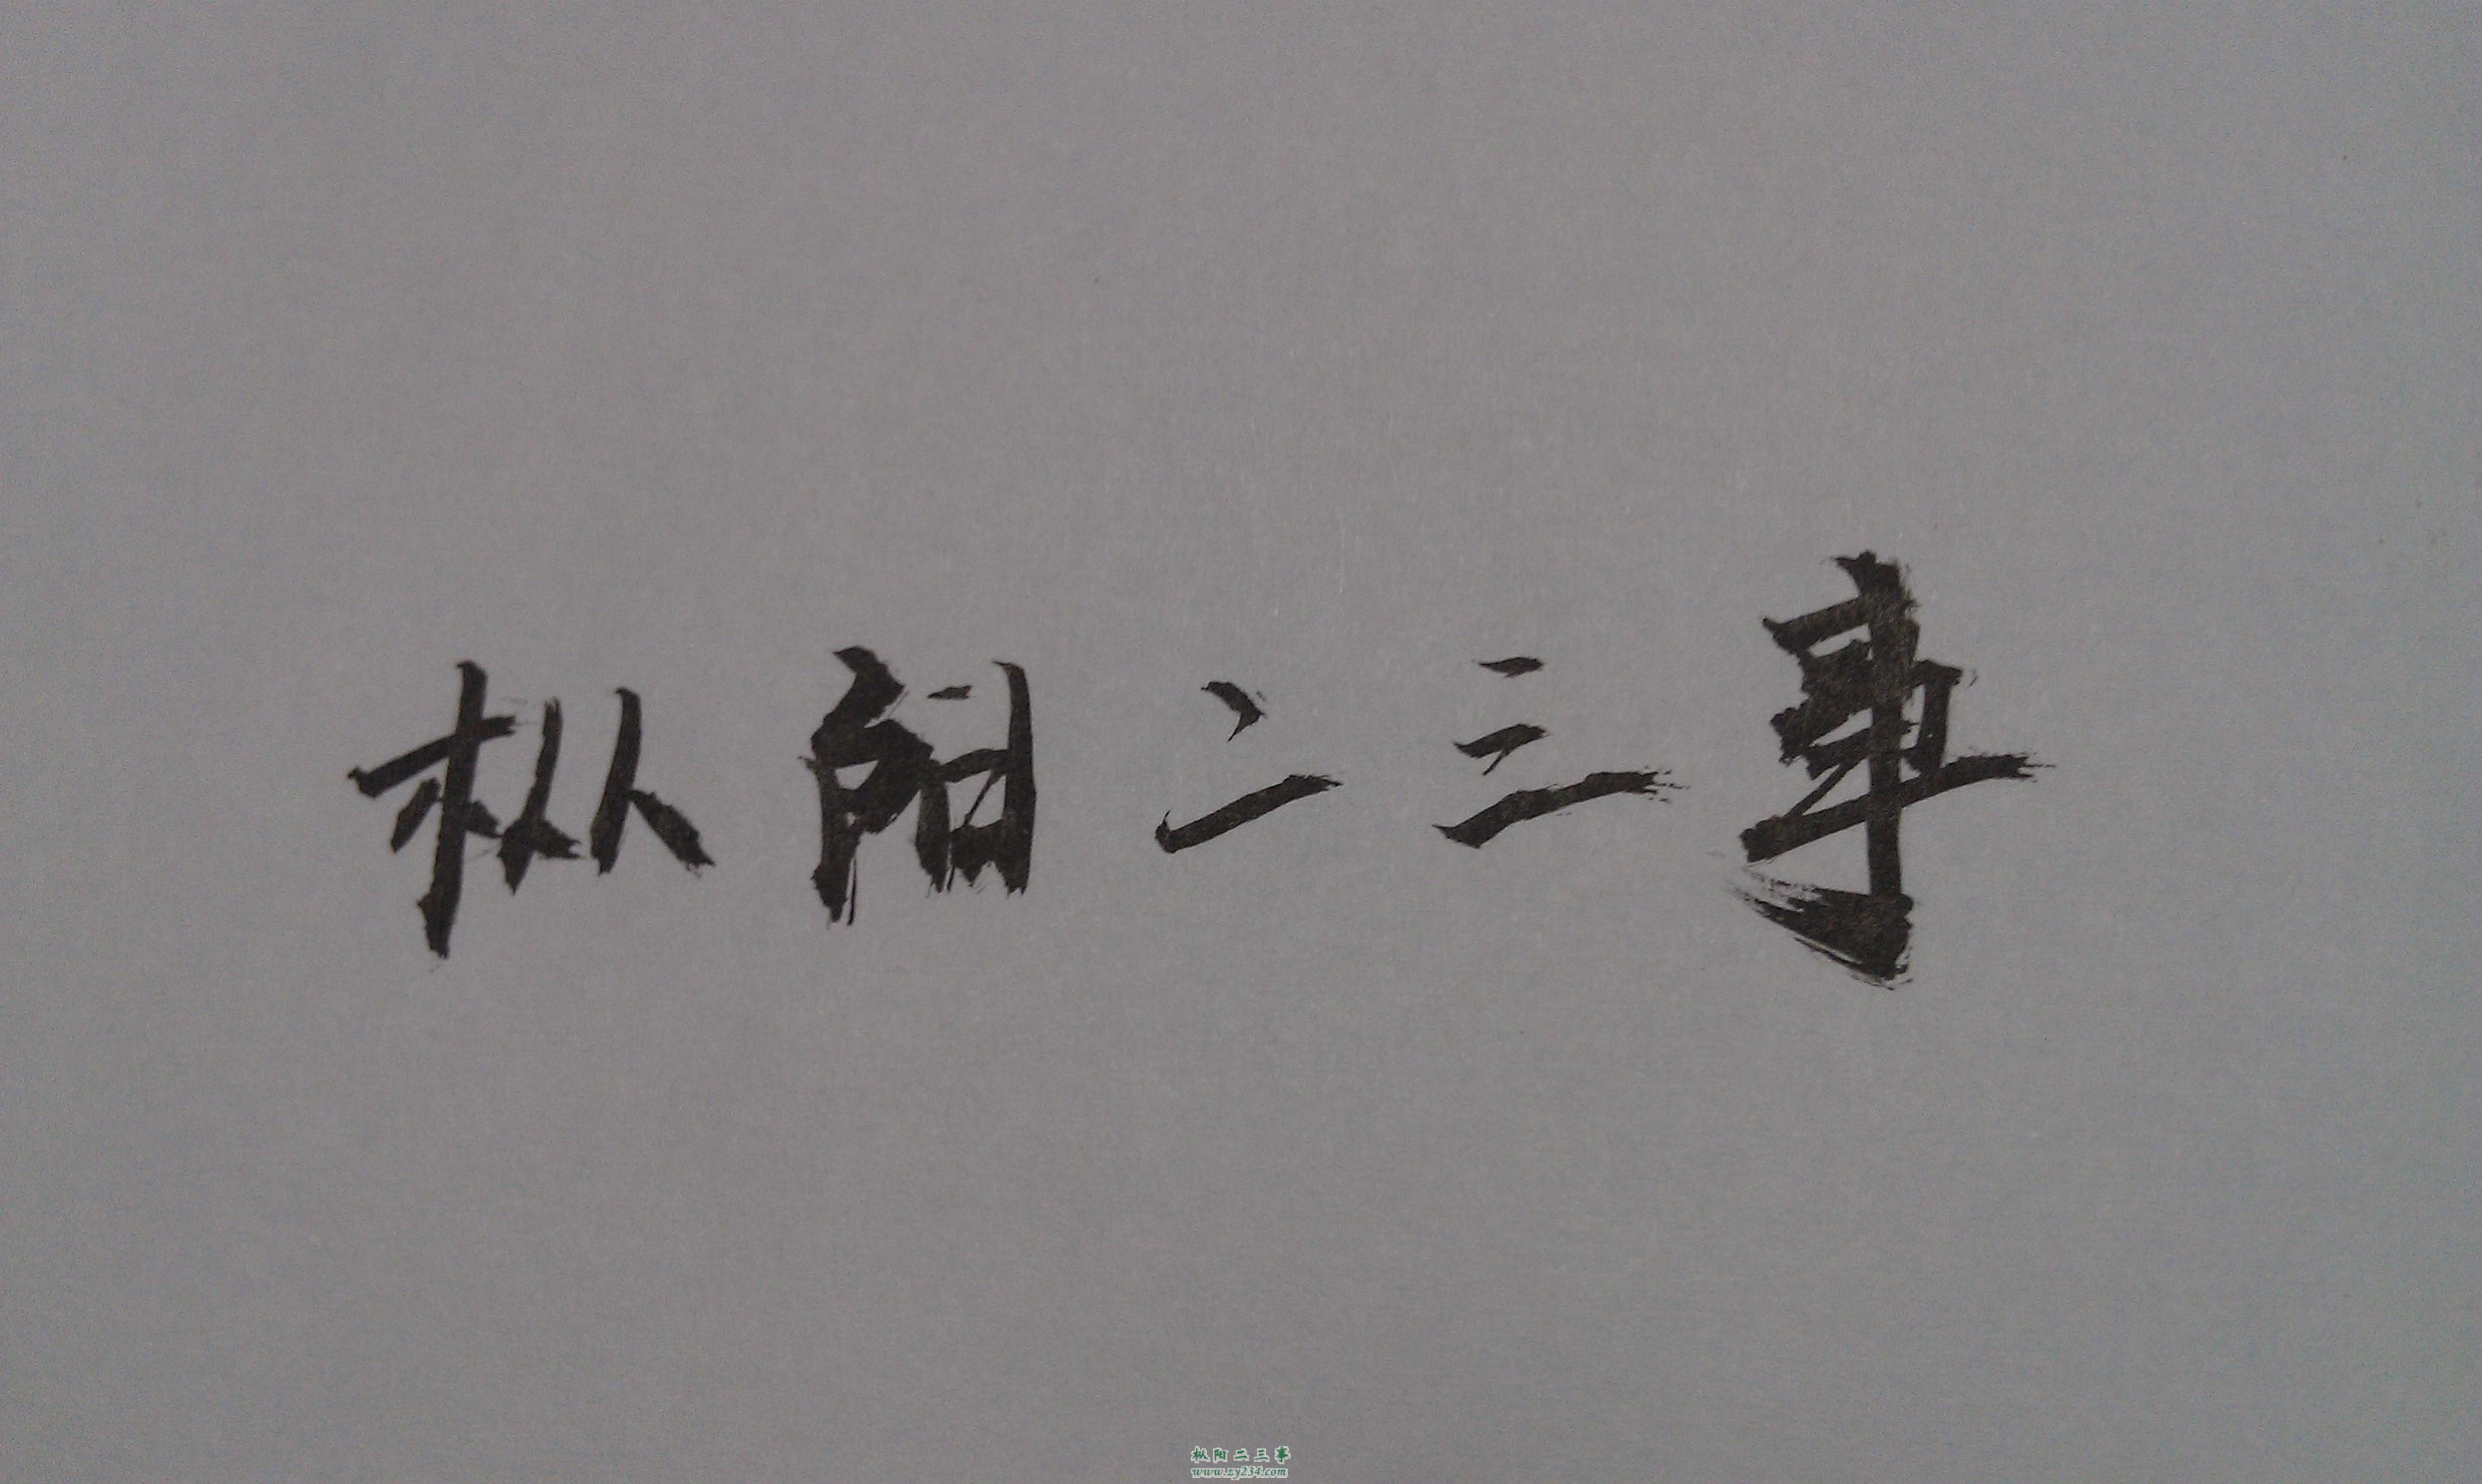 枞阳二三事
枞阳二三事
www.zy234.com